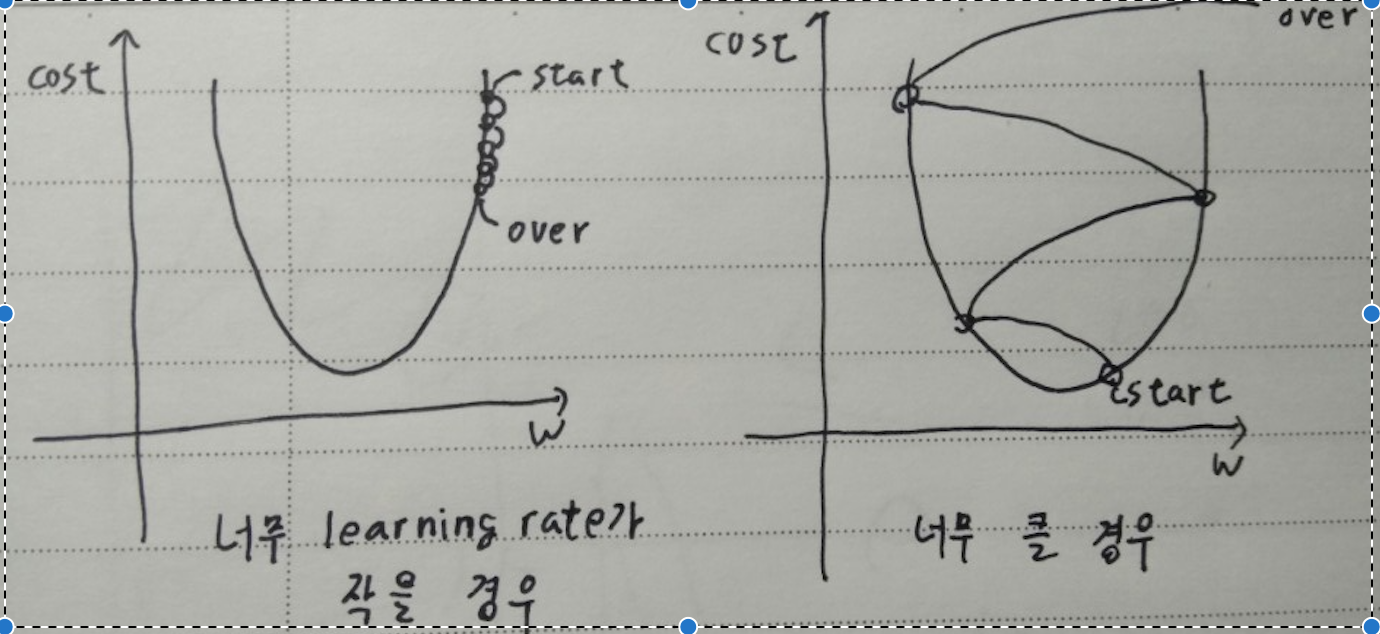 cost
start
over
w
너무 learning rate가
작을 경우
cost
over
start
w
너무 클 경우